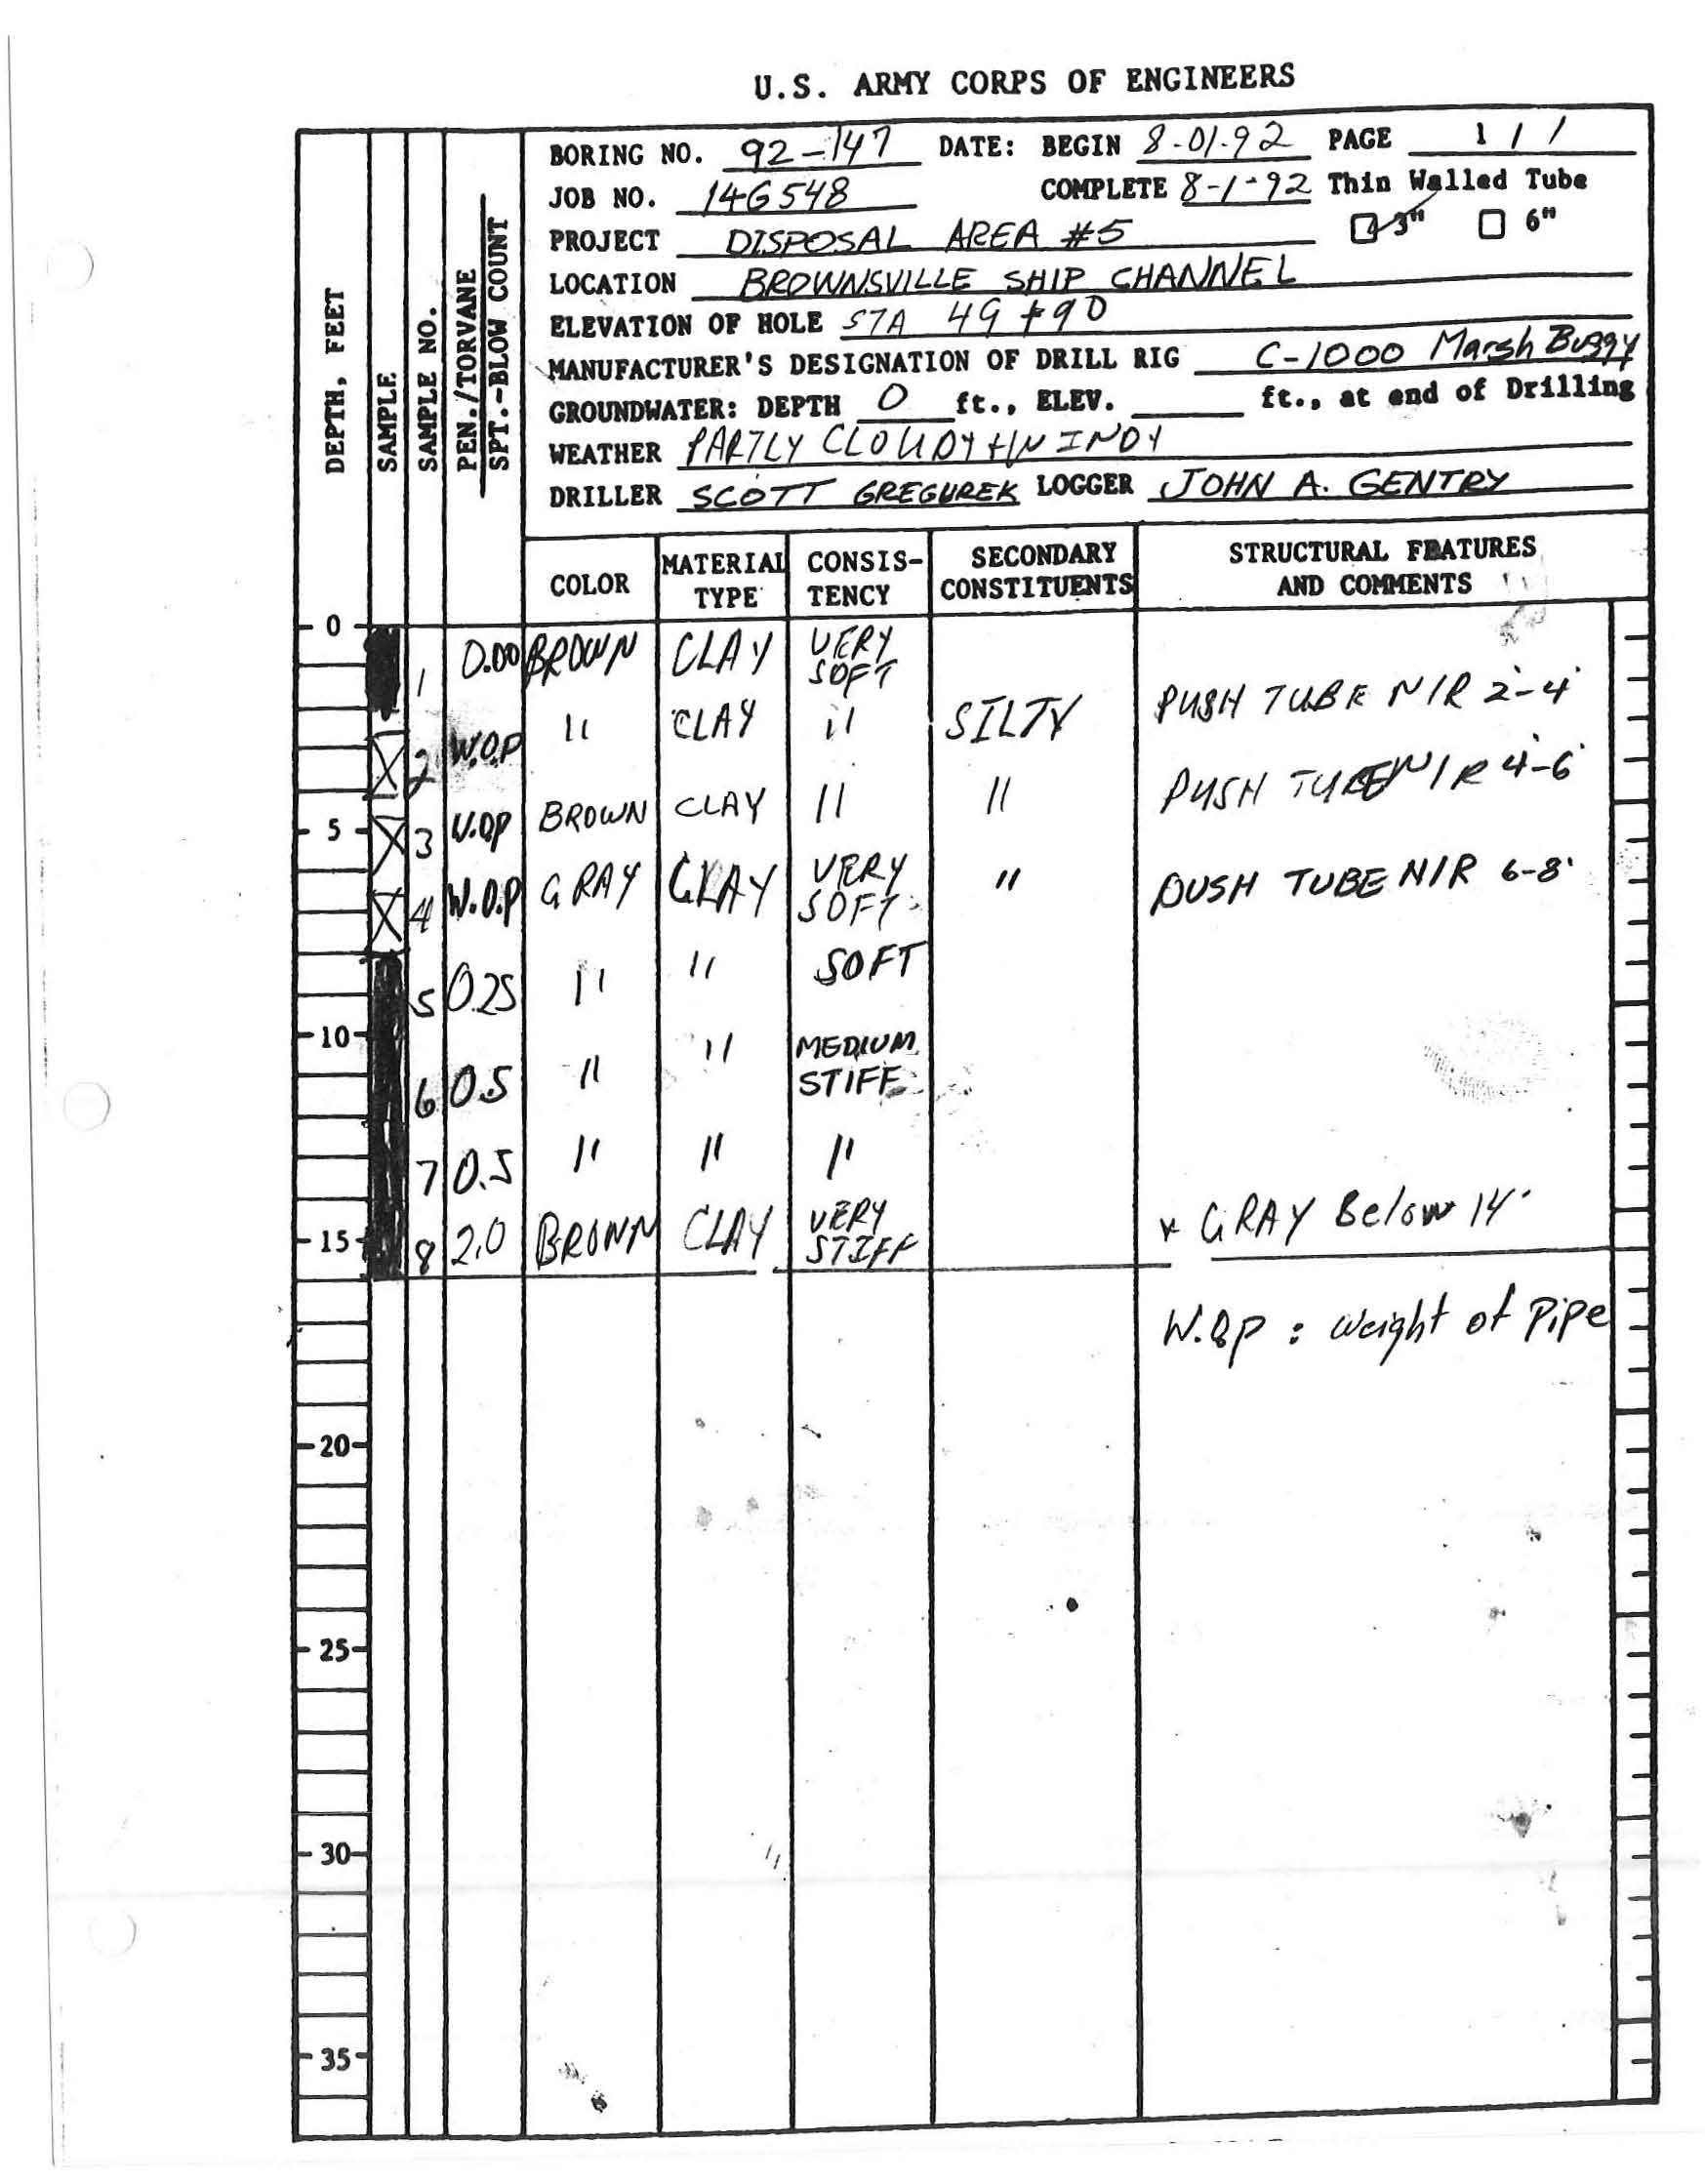 U.S. ARMY CORPS OF ENGINEERS
BORING NO. 92-147 DATE: BEGIN 8-01-92 PAGE 1 / 1
JOB NO. 14G548 COMPLETE 8-1-92 Thin Walled Tube
PROJECT DISPOSAL AREA #5 3" 6"
LOCATION BROWNSVILLE SHIP CHANNEL
ELEVATION OF HOLE STA 49+90
MANUFACTURER'S DESIGNATION OF DRILL RIG C-1000 Marsh Buggy
GROUNDWATER: DEPTH 0 ft., ELEV. ft., at end of Drilling
WEATHER PARTLY CLOUDY WINDY
DRILLER SCOTT GREGUREK LOGGER JOHN A. GENTRY
DEPTH, FEET
SAMPLE
SAMPLE NO.
PEN./TORVANE
SPT.-BLOW COUNT
COLOR
MATERIAL
TYPE
CONSIS-
TENCY
SECONDARY
CONSTITUENTS
STRUCTURAL FEATURES
AND COMMENTS
0
1 0.00 BROWN CLAY VERY
SOFT
2 W.O.P " CLAY " SILTY PUSH TUBE N/R 2'-4'
5 3 W.O.P BROWN CLAY " " PUSH TUBE N/R 4'-6'
4 W.O.P GRAY CLAY VERY
SOFT " PUSH TUBE N/R 6-8'
5 0.25 " " SOFT
10
6 0.5 " " MEDIUM
STIFF
7 0.5 " " "
15 8 2.0 BROWN CLAY VERY
STIFF * GRAY Below 14'
W.O.P : Weight of Pipe
20
25
30
35